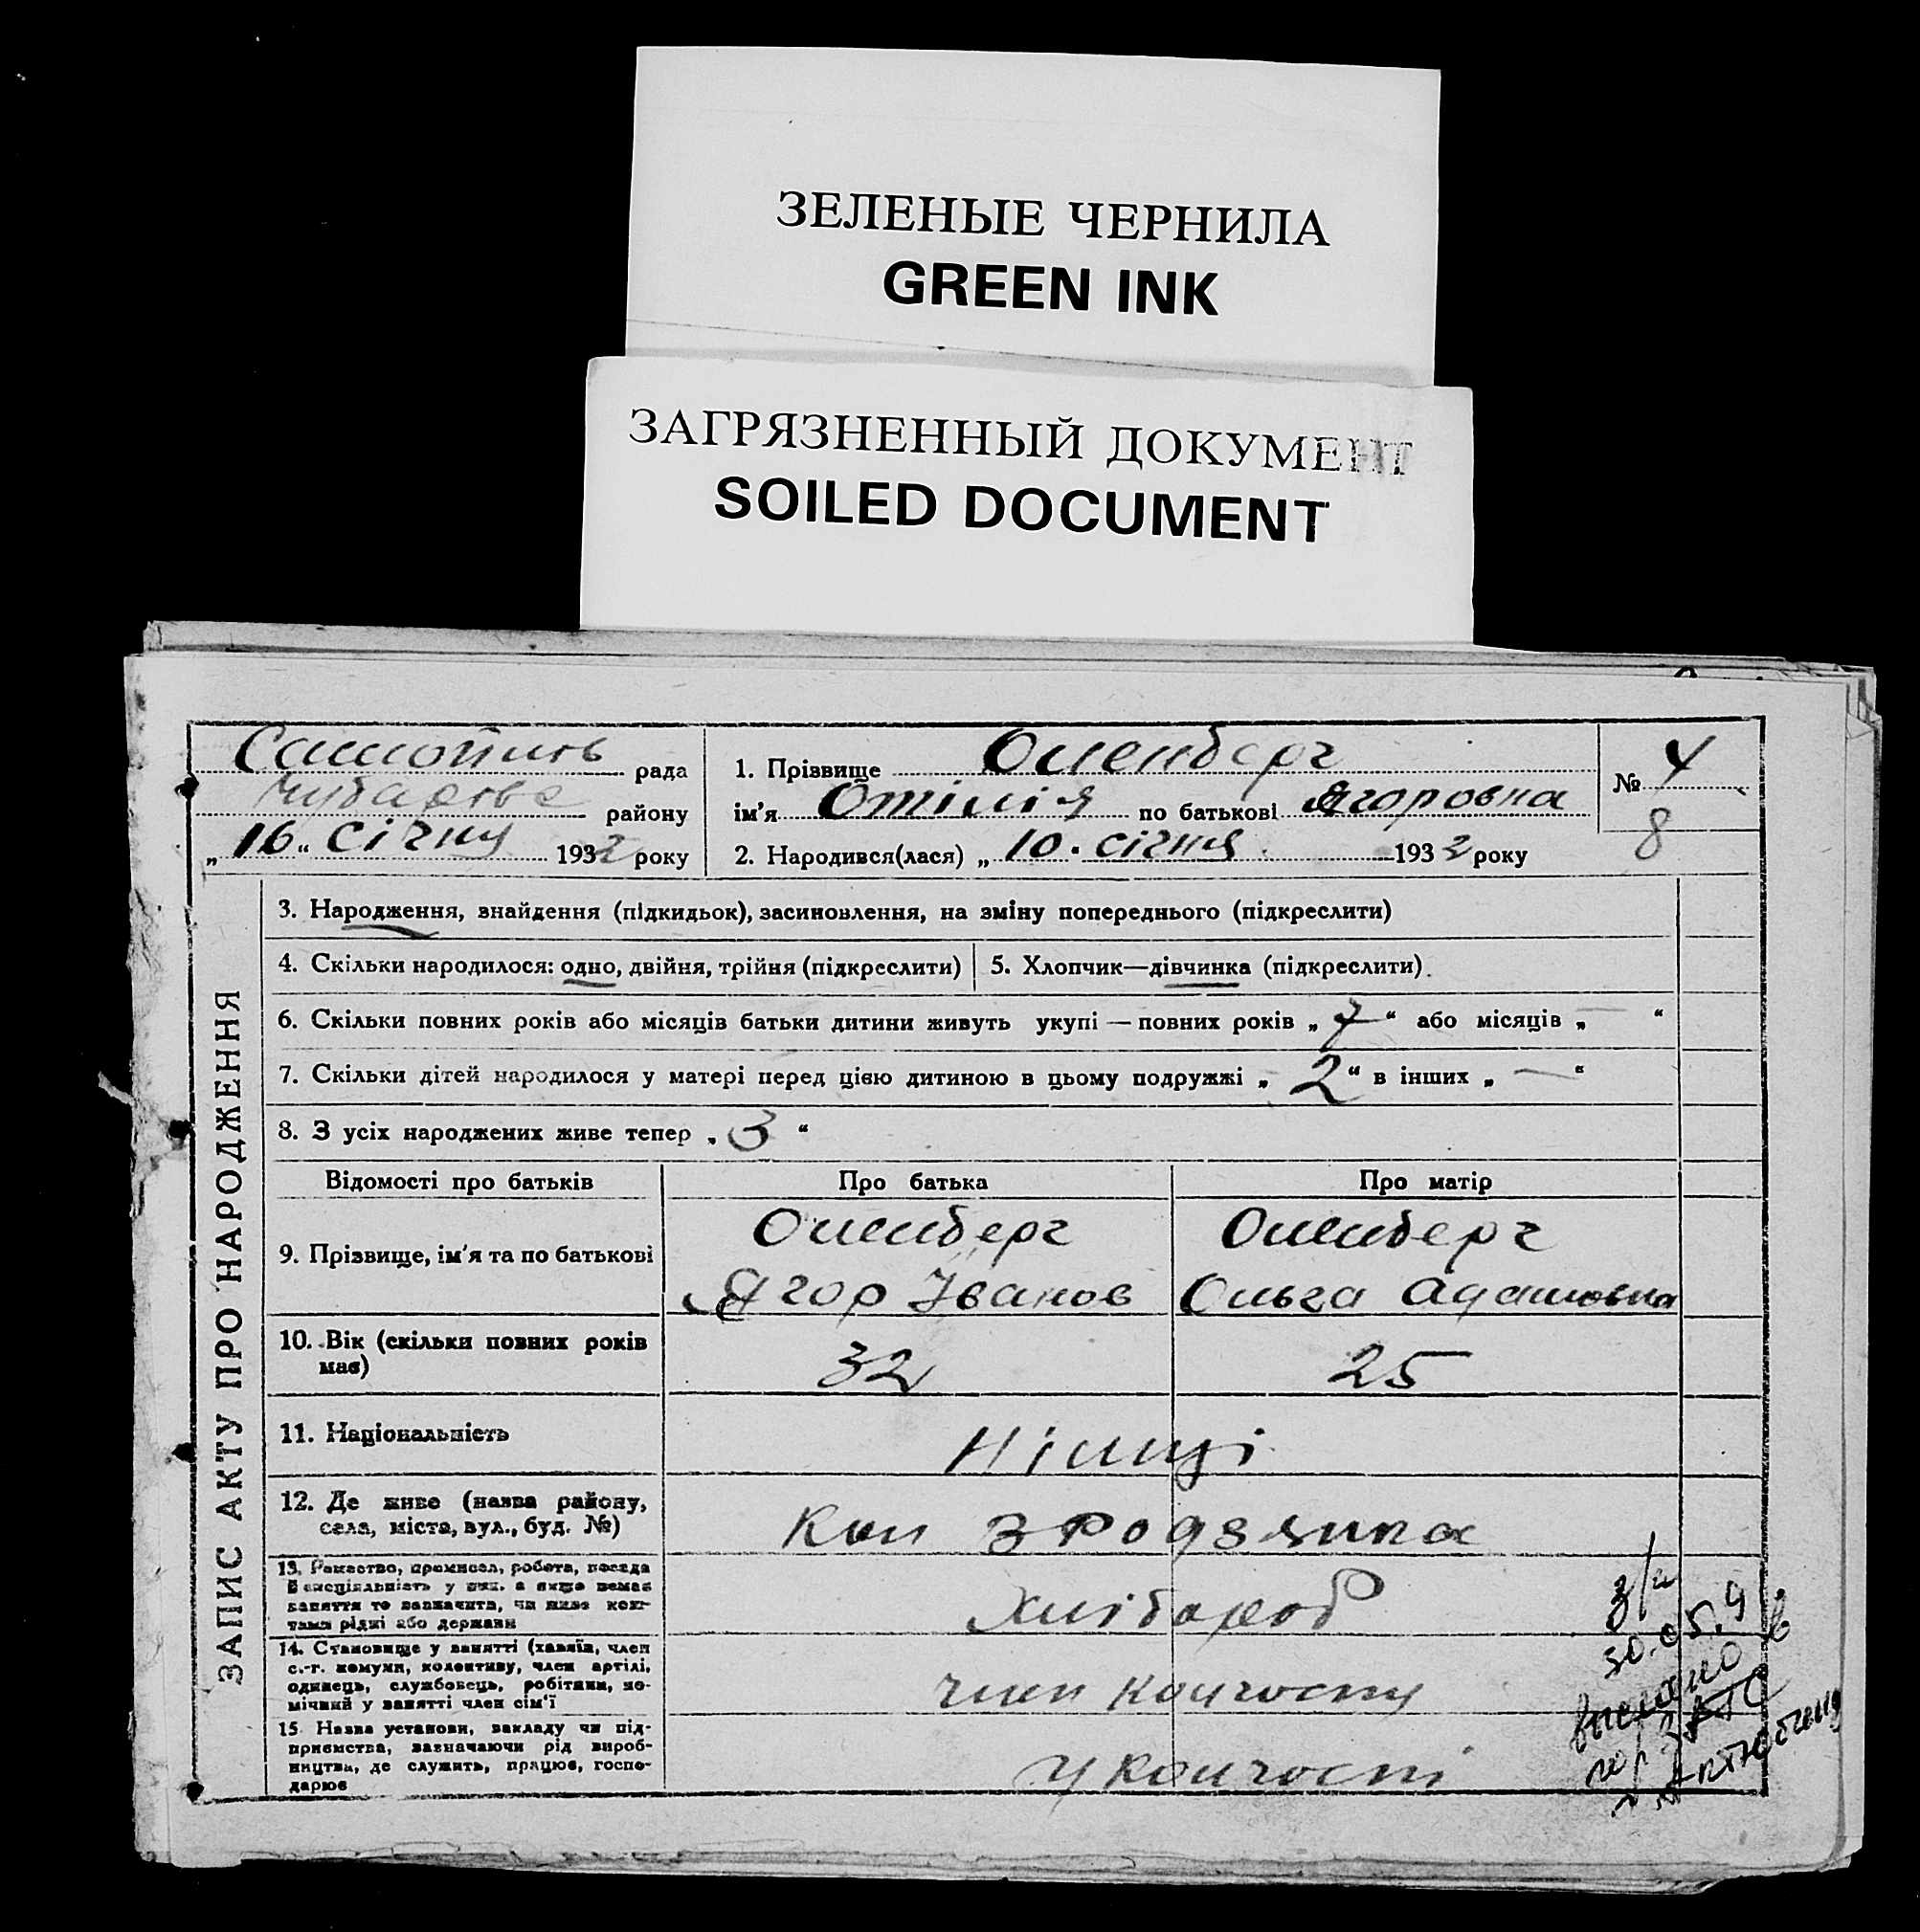 ЗЕЛЕНЫЕ ЧЕРНИЛА
GREEN INK
ЗАГРЯЗНЕННЫЙ ДОКУМЕНТ
SOILED DOCUMENT
рада
району
„16“ січня 1932 року
1. Прізвище Оленберг
ім'я Отілія по батькові Ягоровна
2. Народився(лася) „10. січня 1932 року
№ 4
8
ЗАПИС АКТУ ПРО НАРОДЖЕННЯ
3. Народження, знайдення (підкидьок), засиновлення, на зміну попереднього (підкреслити)
4. Скільки народилося: одно, двійня, трійня (підкреслити)
5. Хлопчик—дівчинка (підкреслити).
6. Скільки повних років або місяців батьки дитини живуть укупі — повних років „7“ або місяців „—“
7. Скільки дітей народилося у матері перед цією дитиною в цьому подружжі „2“ в інших „—“
8. З усіх народжених живе тепер „3“
Відомості про батьків
Про батька
Про матір
9. Прізвище, ім'я та по батькові
Оленберг
Ягор Іванов
Оленберг
Ольга Адамовна
10. Вік (скільки повних років має)
32
25
11. Національність
Німці
12. Де живе (назва району,
села, міста, вул., буд. №)
Кол
13. Ремество, промисел, робота, посада
й спеціяльність у них, а якщо немає
заняття то зазначити, чи живе кош-
тами рідні або держави
Хлібороб
14. Становище у занятті (хазяїн, член
с.-г. комуни, колективу, член артілі,
одинець, службовець, робітник, по-
мічний у занятті член сім'ї
член колгоспу
15. Назва установи, закладу чи під-
приємства, зазначаючи рід вироб-
ництва, де служить, працює, госпо-
дарює
у колгоспі